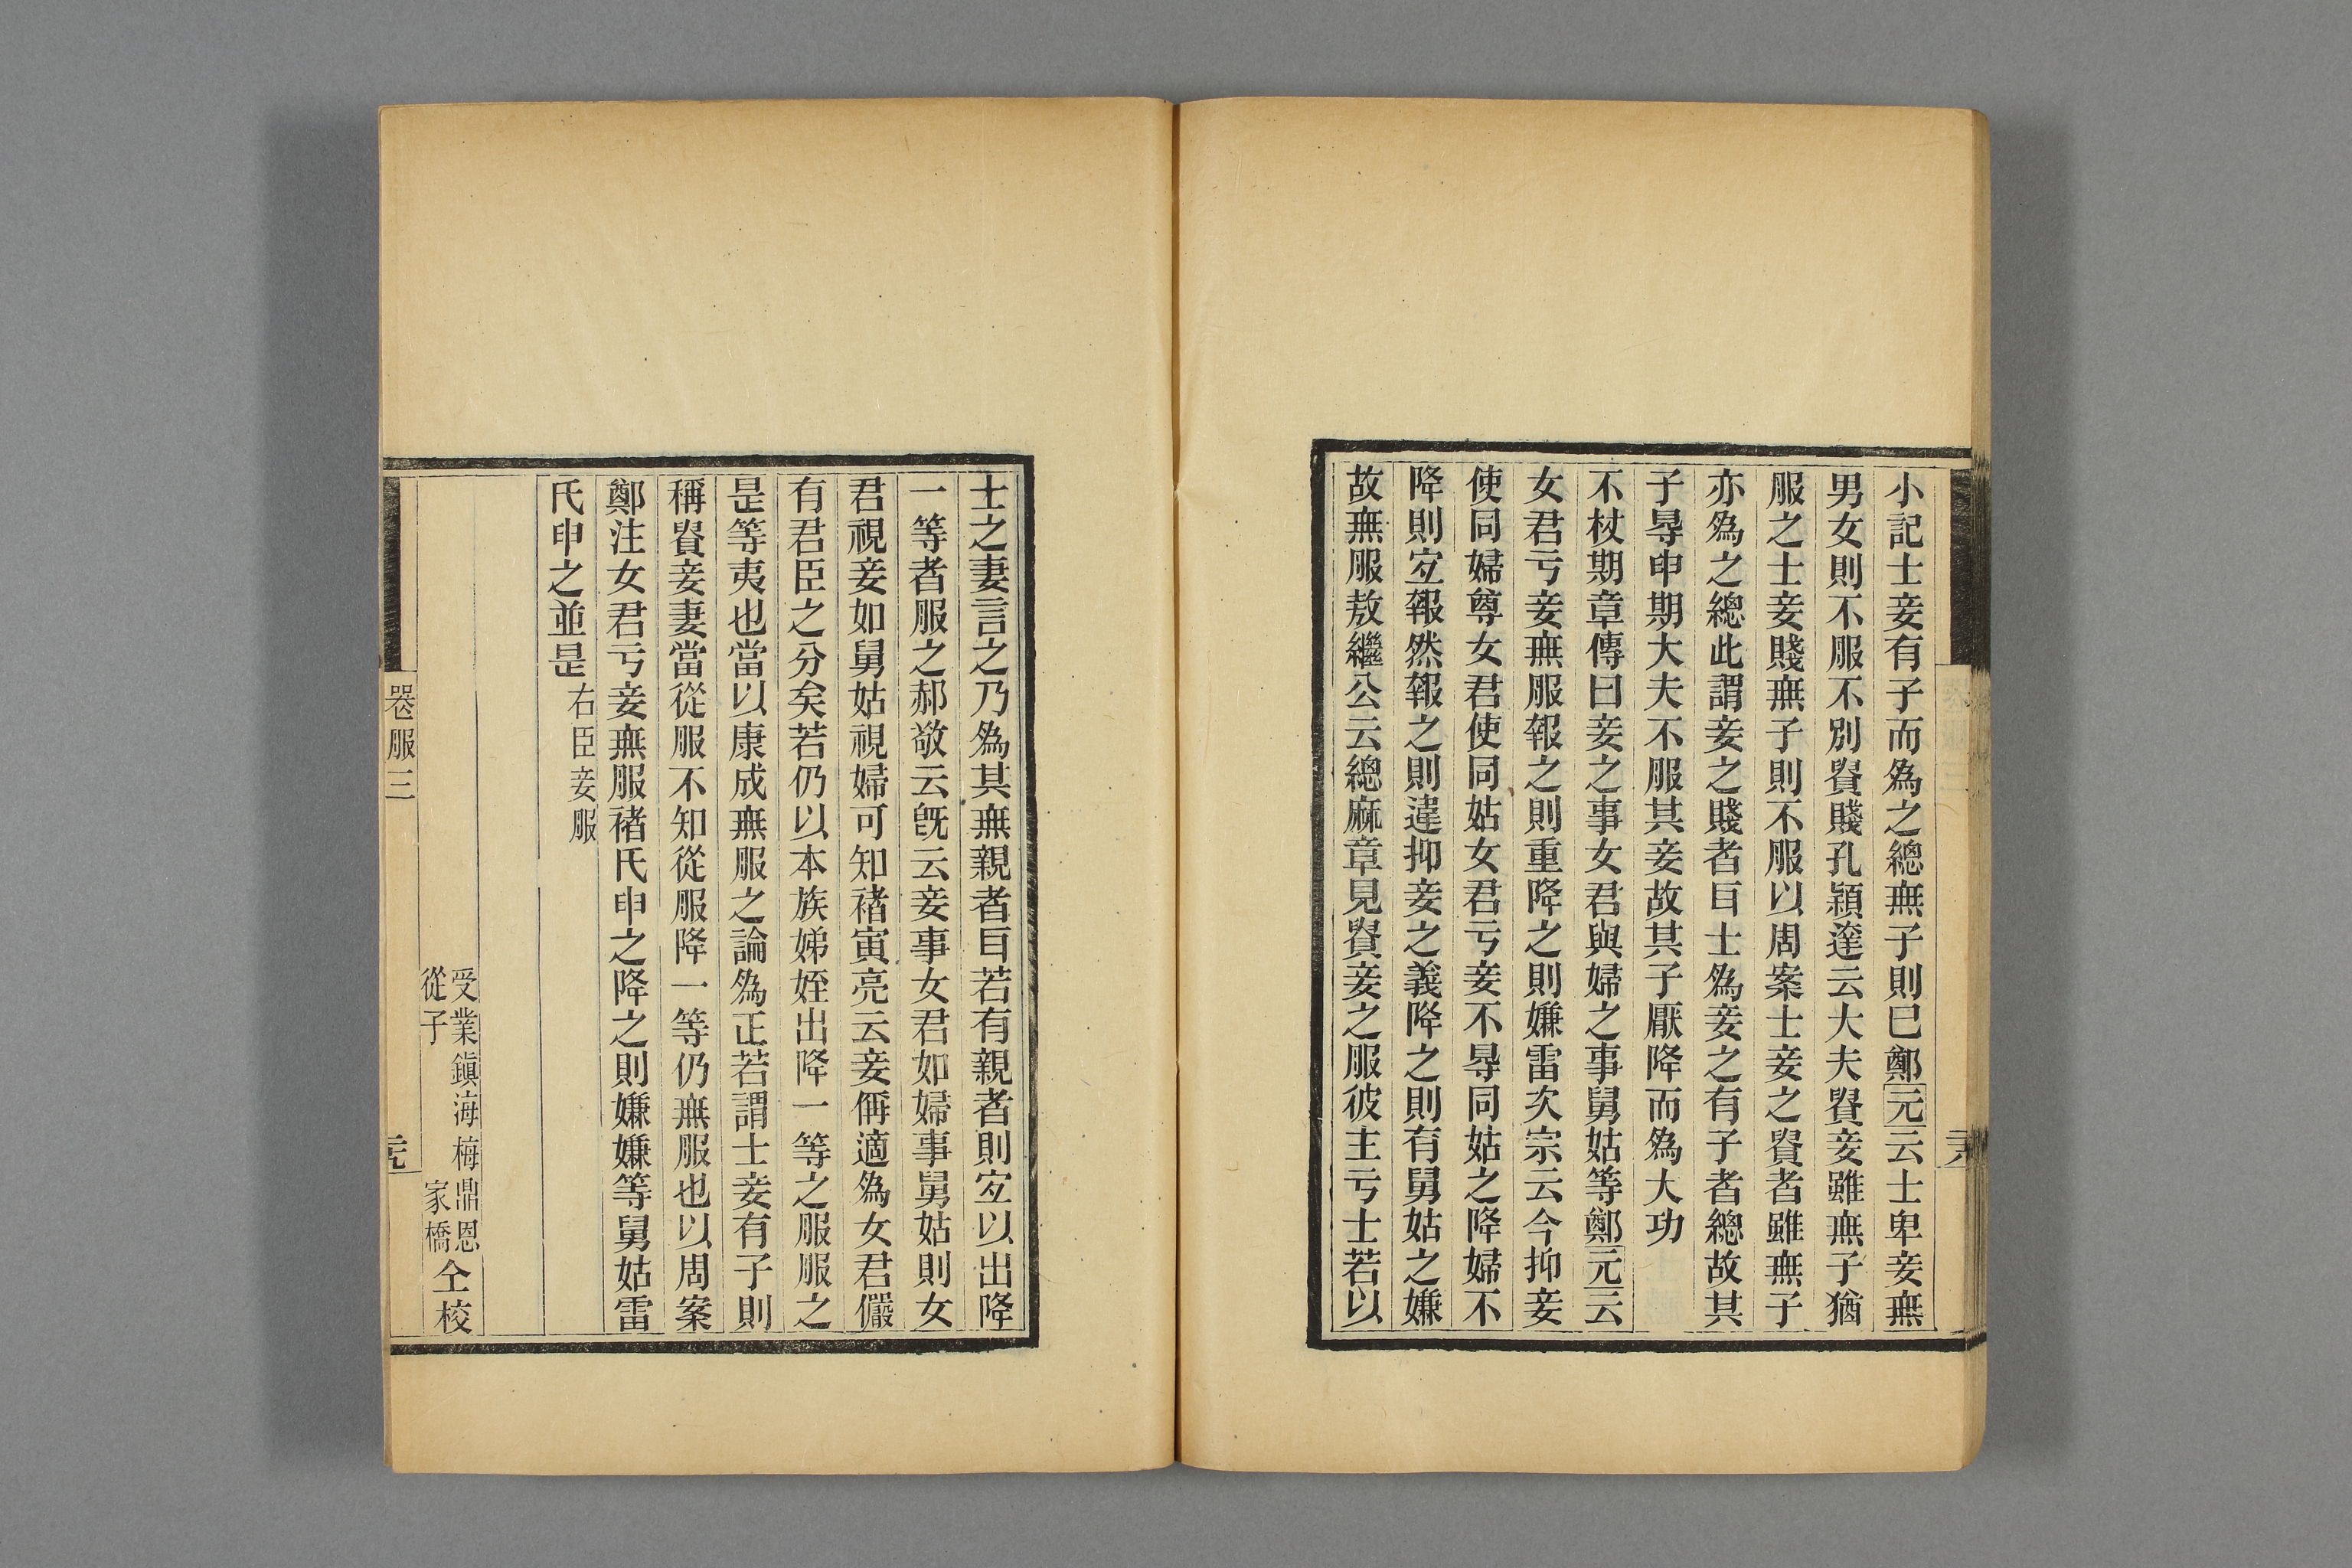 小記士妾有子而爲之緦無子則已鄭元云士卑妾無
男女則不服不別貴賤孔穎達云大夫貴妾雖無子猶
服之士妾賤無子則不服以周案士妾之貴者雖無子
亦爲之緦此謂妾之賤者㠯士爲妾之有子者緦故其
子㝵申期大夫不服其妾故其子厭降而爲大功
不杖期章傳曰妾之事女君與婦之事舅姑等鄭元云
女君亏妾無服報之則重降之則嫌雷次宗云今抑妾
使同婦尊女君使同姑女君亏妾不㝵同姑之降婦不
降則宐報然報之則違抑妾之義降之則有舅姑之嫌
故無服敖繼公云緦麻章見貴妾之服彼主亏士若以
士之妻言之乃爲其無親者㠯若有親者則宐以出降
一等者服之郝敬云旣云妾事女君如婦事舅姑則女
君視妾如舅姑視婦可知禇寅亮云妾偁適爲女君儼
有君臣之分矣若仍以本族娣姪出降一等之服服之
是等夷也當以康成無服之論爲正若謂士妾有子則
稱貴妾妻當從服不知從服降一等仍無服也以周案
鄭注女君亏妾無服禇氏申之降之則嫌嫌等舅姑雷
氏申之並是右臣妾服
受業鎭海梅鼎恩
從子家橋
仝校
喪服三